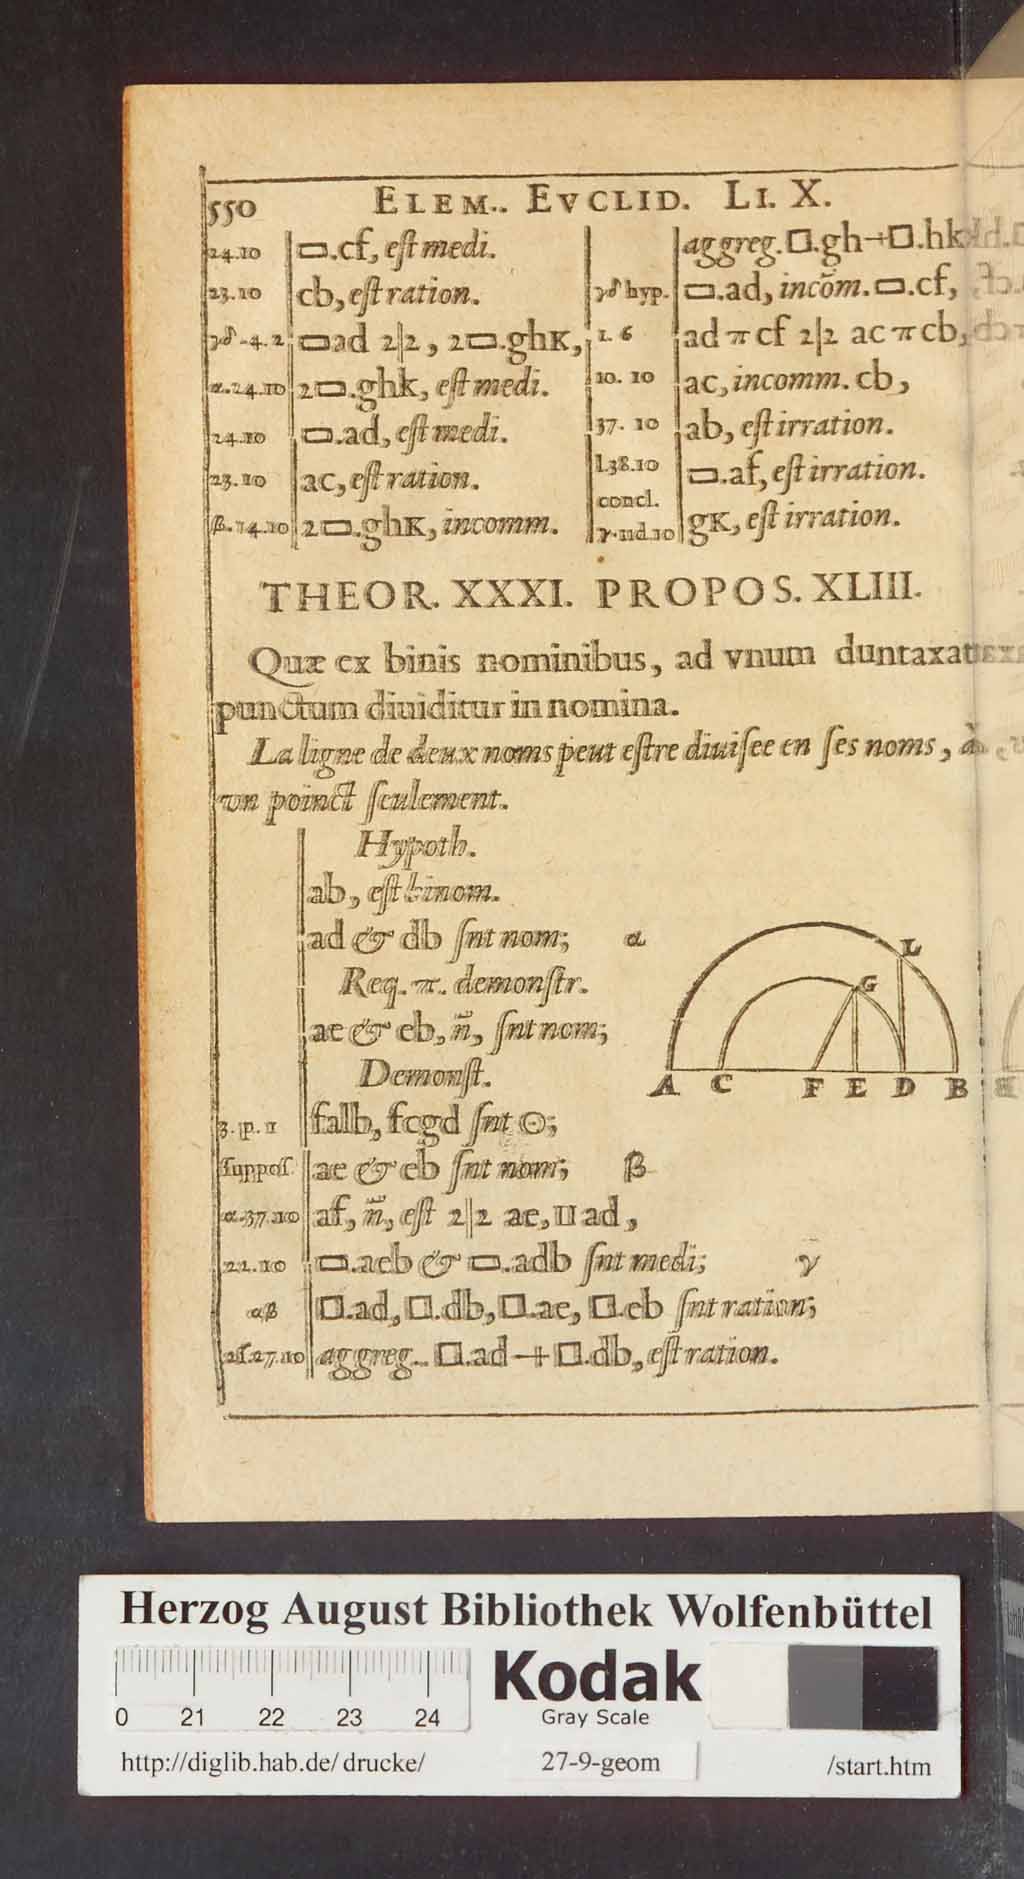 550 ELEM.. EVCLID. LI. X.
24.10 ▭.cf, est medi.
23.10 cb, est ration.
γδ-4.2 ▭ad 2|2, 2▭.ghK,
α.24.10 2▭.ghk, est medi.
24.10 ▭.ad, est medi.
23.10 ac, est ration.
β.14.10 2▭.ghK, incomm.
aggreg. □.gh+□.hk
γδ hyp. ▭.ad, incõm. ▭.cf,
1. 6 ad π cf 2|2 ac π cb,
10. 10 ac, incomm. cb,
37. 10 ab, est irration.
l.38.10 ▭.af, est irration.
concl.
γ.11d.10 gK, est irration.
THEOR. XXXI. PROPOS. XLIII.
Quæ ex binis nominibus, ad vnum duntaxat
punctum diuiditur in nomina.
La ligne de deux noms peut estre diuisee en ses noms, à
vn poinct seulement.
Hypoth.
ab, est binom.
ad & db snt nom; α
Req. π. demonstr.
ae & eb, ñ, snt nom;
Demonst.
3. p. 1 falb, fcgd snt ⊙;
suppos. ae & eb snt nom; β
α.37.10 af, ñ, est 2||2 ae, ⊔ ad,
22.10 ▭.aeb & ▭.adb snt medi; γ
αβ □.ad, □.db, □.ae, □.eb snt ration;
2s.27.10 aggreg.. □.ad + □.db, est ration.
L
G
A C F E D B
Herzog August Bibliothek Wolfenbüttel
0 21 22 23 24
Kodak
Gray Scale
http://diglib.hab.de/ drucke/ 27-9-geom /start.htm